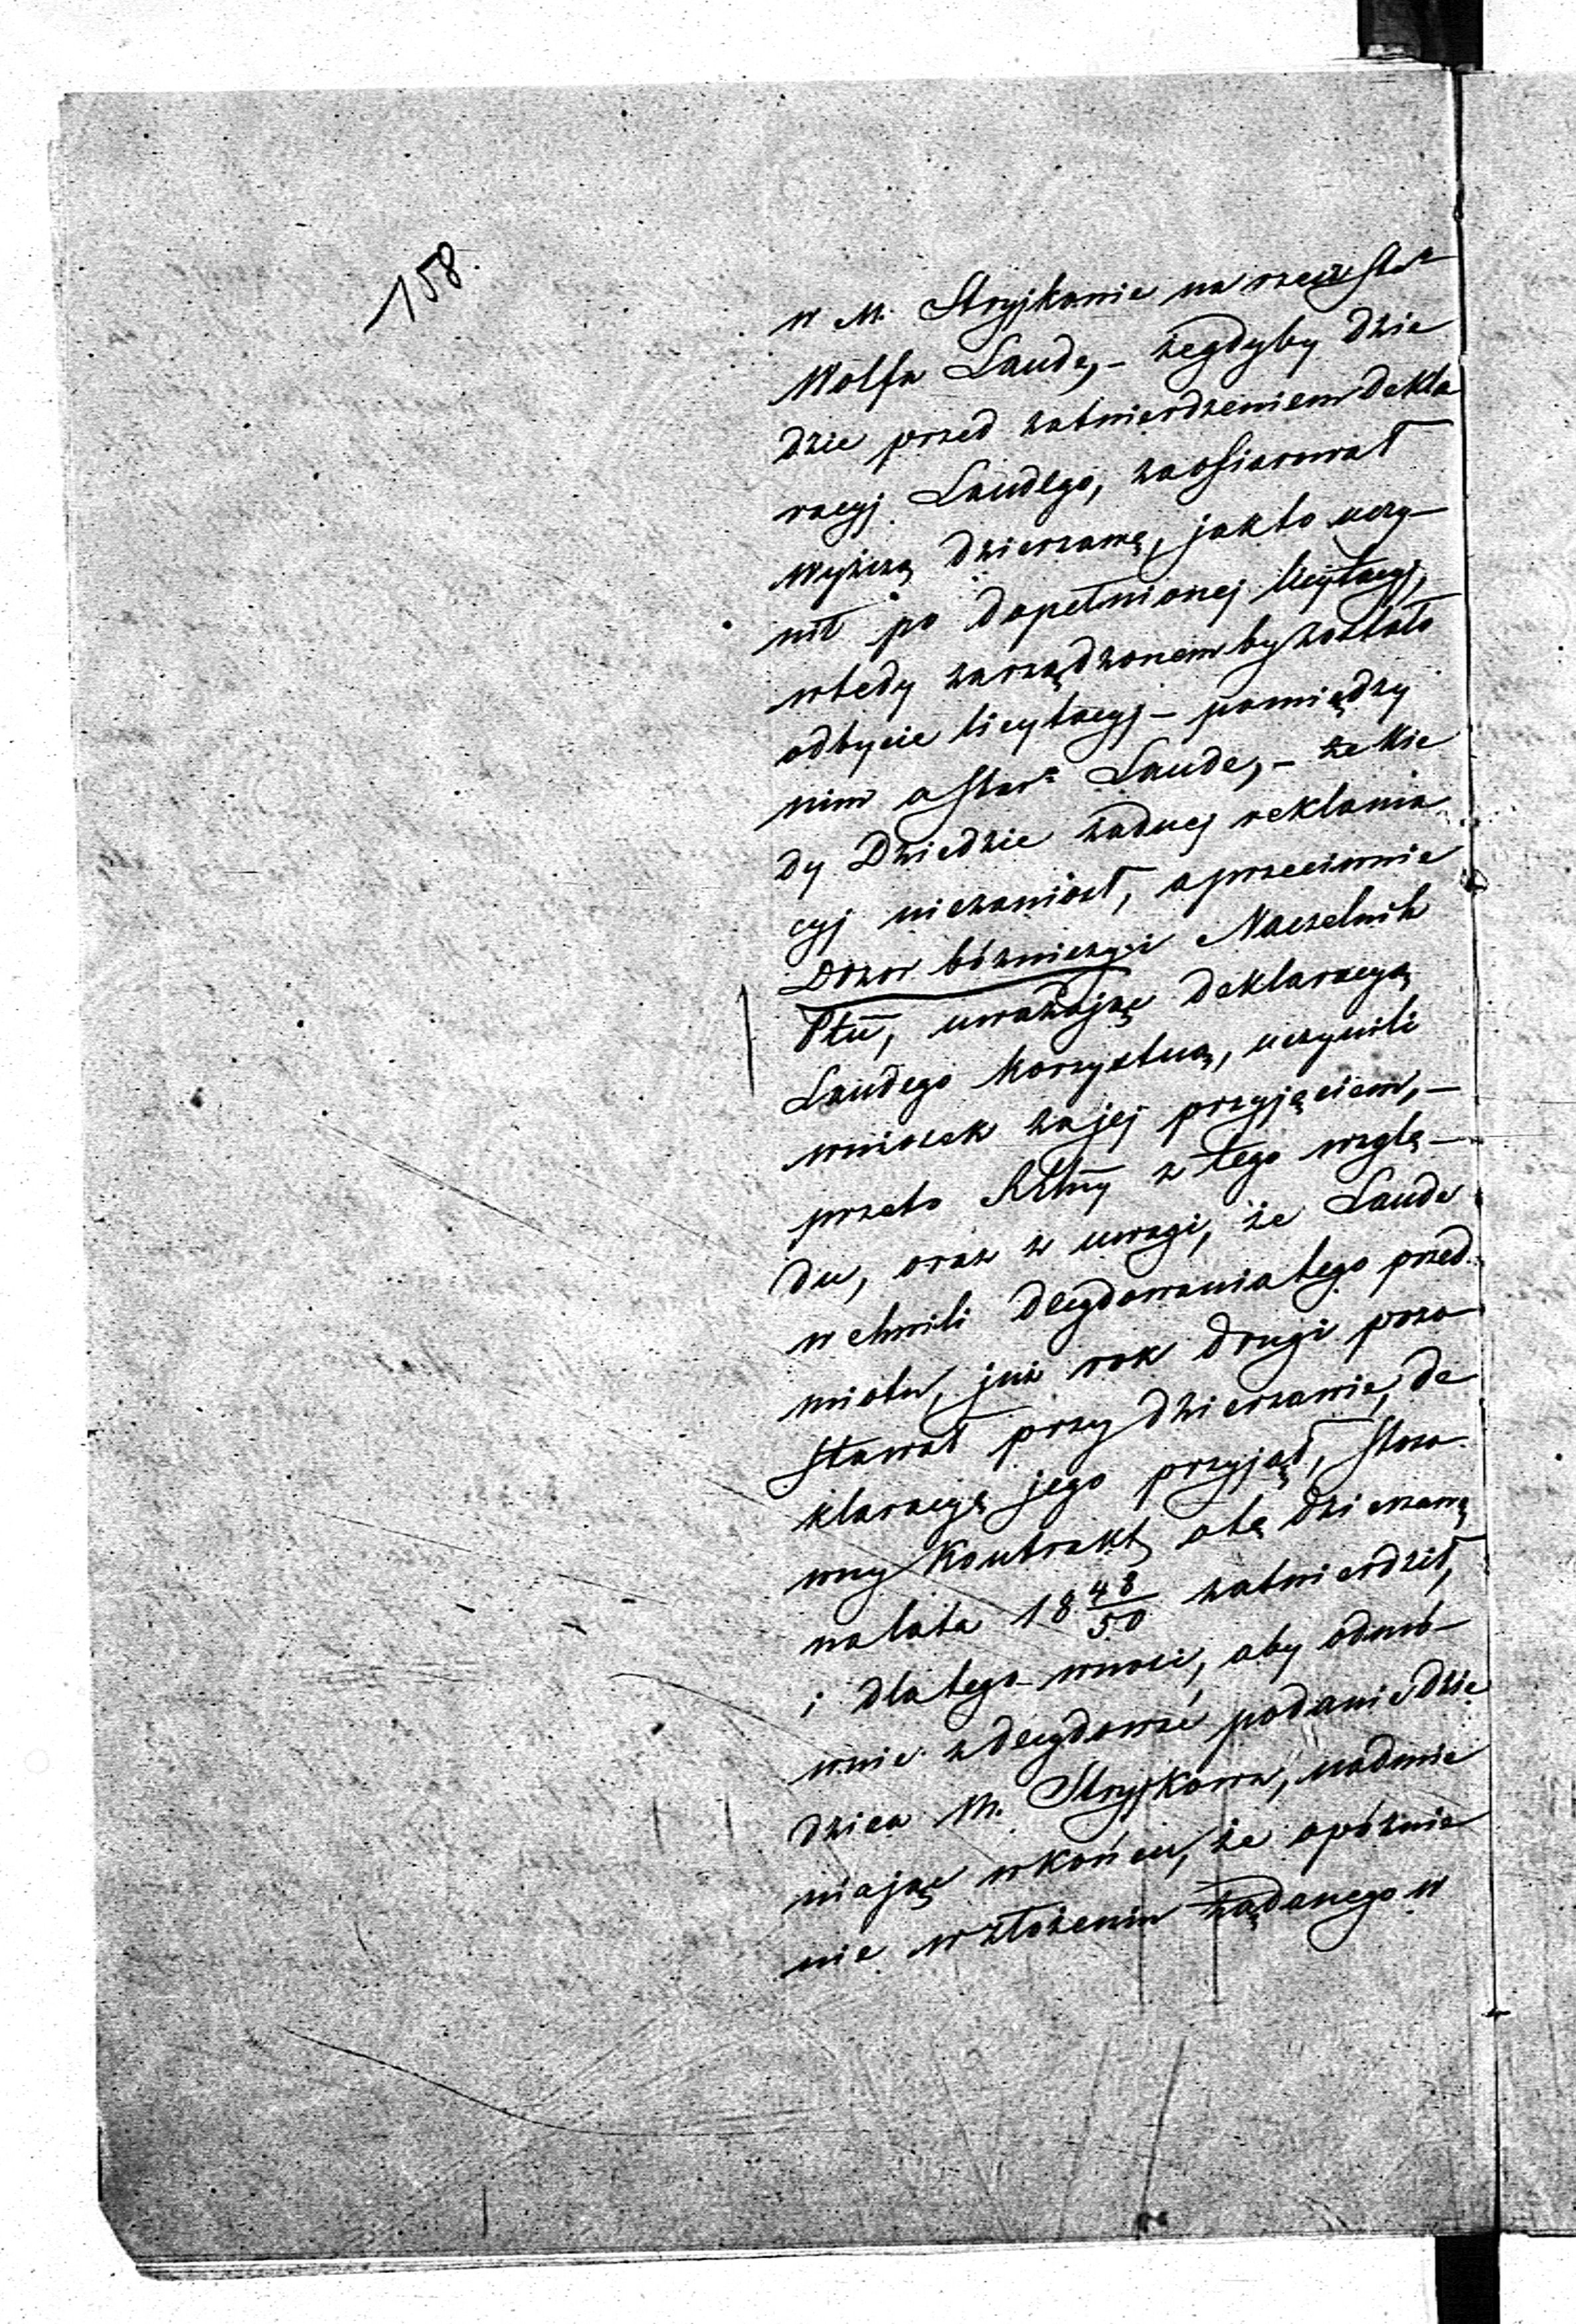 158.
w M. Strÿjkowie na rzecz Star
Wolfa Laude, – żegdyby Dzie
dzic przed zatwierdzeniem dekla
racyj Laudego, zaofiarował
wyższą dzierżawę, jak to uczy–
nił po dopełnionej licytacyj,
wtedy zarządzonem by zostało
odbycie licytacyj – pomiędzy
nim a Star Laude, – że kie
dy Dziedzic żadnej reklama
cyj niezaniósł, a przeciwnie
Dozór bóżniczy i Naczelnik
Ptu, uważając deklaracyą
Laudego korzystną, uczynili
wniosek za jej przyjęciem, –
przeto z tego wzglę–
du, oraz z uwagi, że Laude
w chwili decydowania tego przed
miotu, już rok drugi pozo
stawał przy dzierżawie, de
klaracyę jego przyjął, stoso
wny Kontrakt o tę dzierżawę
na lata 18 48/50 zatwierdził,
i dlatego wnosi, aby odmó–
wnie zdecydować podanie dzie
dzica M. Strÿjkowa, nadmie
niając wkońcu, że opóźnie
nie w złożeniu żądanego w